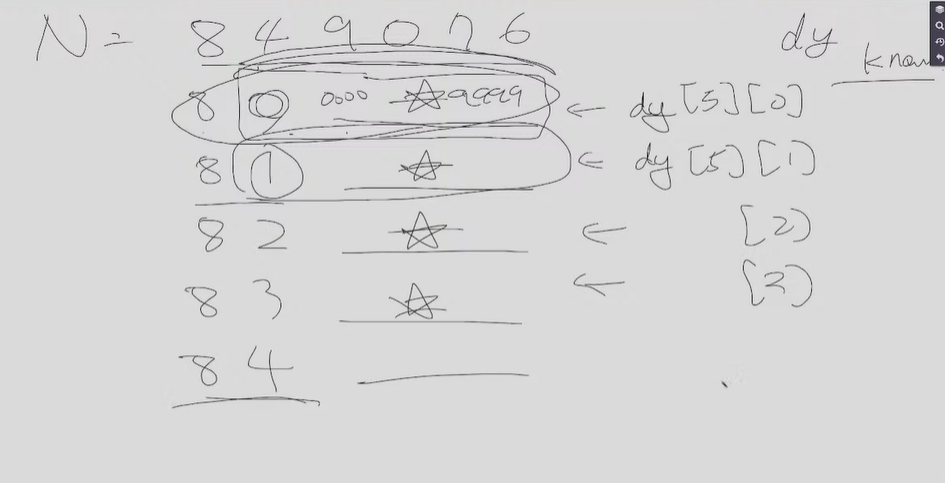 N = 849076 dy
know
8 0 0000 ☆9999 ← dy[5][0]
8 1 ☆ ← dy[5][1]
8 2 ☆ ← [2]
8 3 ☆ ← [3]
8 4